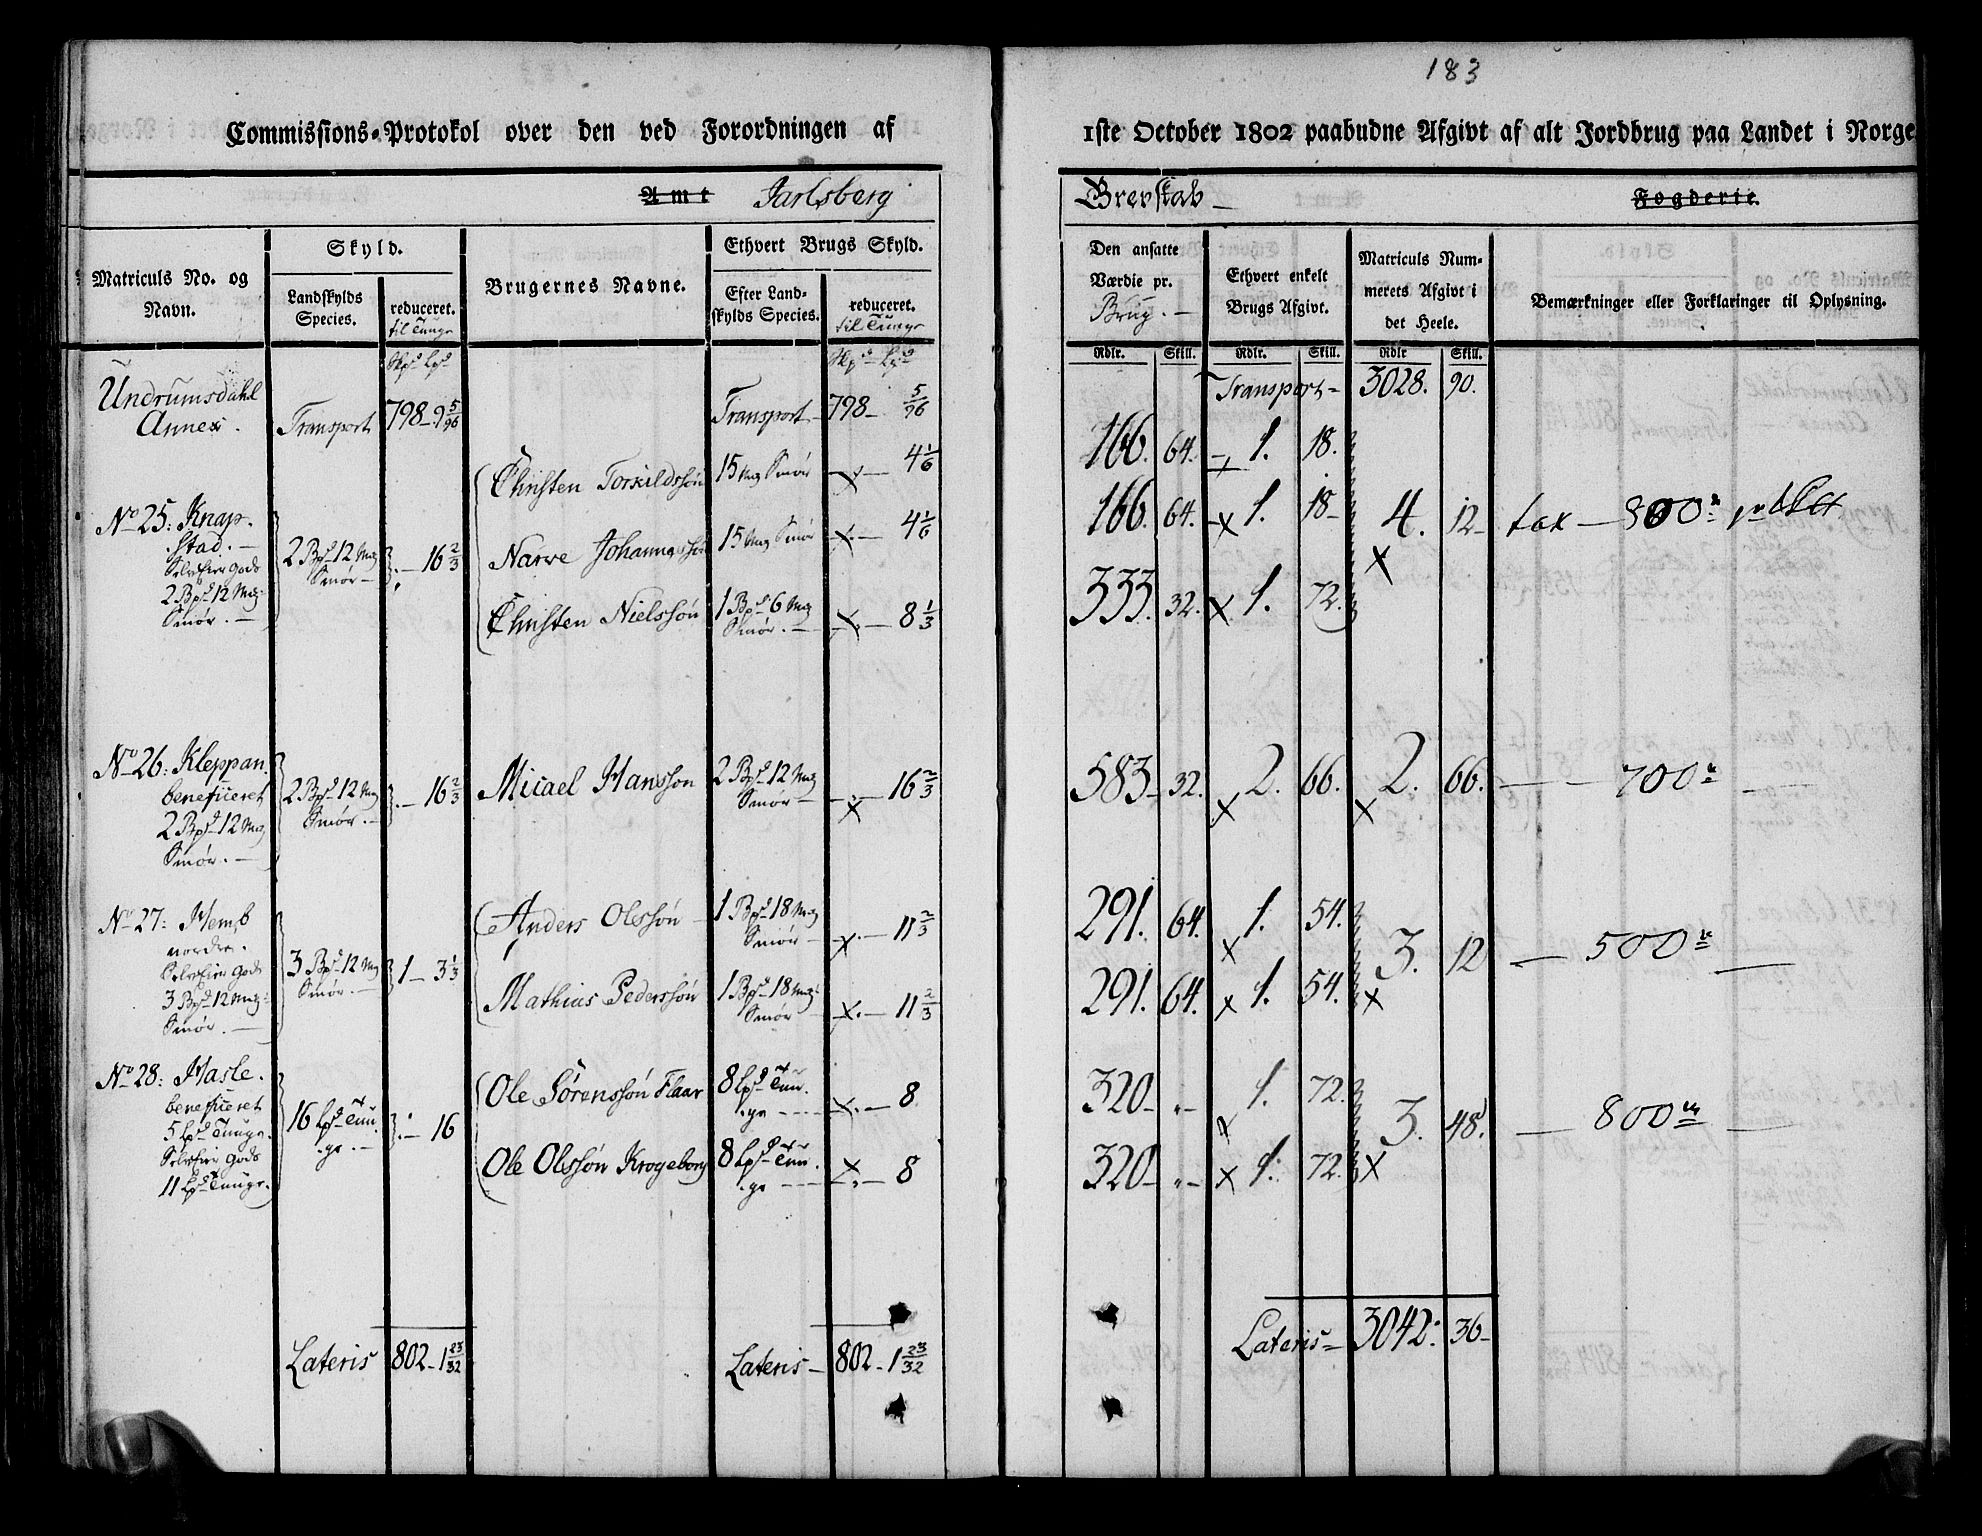 183
Commissions-Protokol over den ved Forordningen af
1ste October 1802 paabudne Afgivt af alt Jordbrug paa Landet i Norge
Amt Jarlsberg
Grevskab
Fogderie.
Matriculs No. og
Navn.
Skyld.
Landskylds
Species.
reduceret.
til Tunge
Brugernes Navne.
Ethvert Brugs Skyld.
Efter Land-
skylds Species.
reduceret.
til Tunge
Den ansatte
Værdie pr.
Brug.
Ethvert enkelt
Brugs Afgivt.
Matriculs Num-
merets Afgivt i
det Heele.
Bemærkninger eller Forklaringer til Oplysning.
Rdlr. Skill. Rdlr. Skill. Rdlr Skill.
Undrumsdahl
Annex.
Transport 798-9 5/96
Transport 798- 5/96
Transport 3028. 90.
No 25: Knap-
stad.
Selveier Gods
2 Bpd 12 Mrk
Smør.
2 Bpd 12 Mrk
Smør
16 2/3
Christen Torkildssøn 15 Mrk Smør 4 1/6 166. 64. 1. 18.
Narve Johannessøn 15 Mrk Smør 4 1/6 166. 64. 1. 18 4. 12 tax 800
Christen Nielssøn 1 Bpd 6 Mrk
Smør. 8 1/3 333. 32. 1. 72.
No 26: Kleppan.
beneficeret
2 Bpd 12 Mrk
Smør.
2 Bpd 12 Mrk
Smør.
16 2/3
Micael Hanssøn 2 Bpd 12 Mrk
Smør 16 2/3 583 32. 2. 66. 2. 66. 700
No 27: Hemb
nordre.
Selveier Gods
3 Bpd 12 Mrk
Smør.
3 Bpd 12 Mrk
Smør.
1 - 3 1/3
Anders Olssøn 1 Bpd 18 Mrk
Smør 11 2/3 291. 64. 1. 54. 3. 12 500
Mathias Pederssøn 1 Bpd 18 Mrk
Smør 11 2/3 291. 64. 1. 54.
No 28: Hasle.
beneficeret
5 Lpd Tunge.
Selveier Gods
11 Lpd Tunge.
16 Lpd Tun-
ge.
16
Ole Sørenssøn Flaar 8 Lpd Tun-
ge 8 320 1. 72. 3. 48. 800
Ole Olssøn Krogeborg 8 Lpd Tun-
ge 8 320 1. 72.
Lateris 802-1 23/32
Lateris 802-1 23/32
Lateris 3042. 36